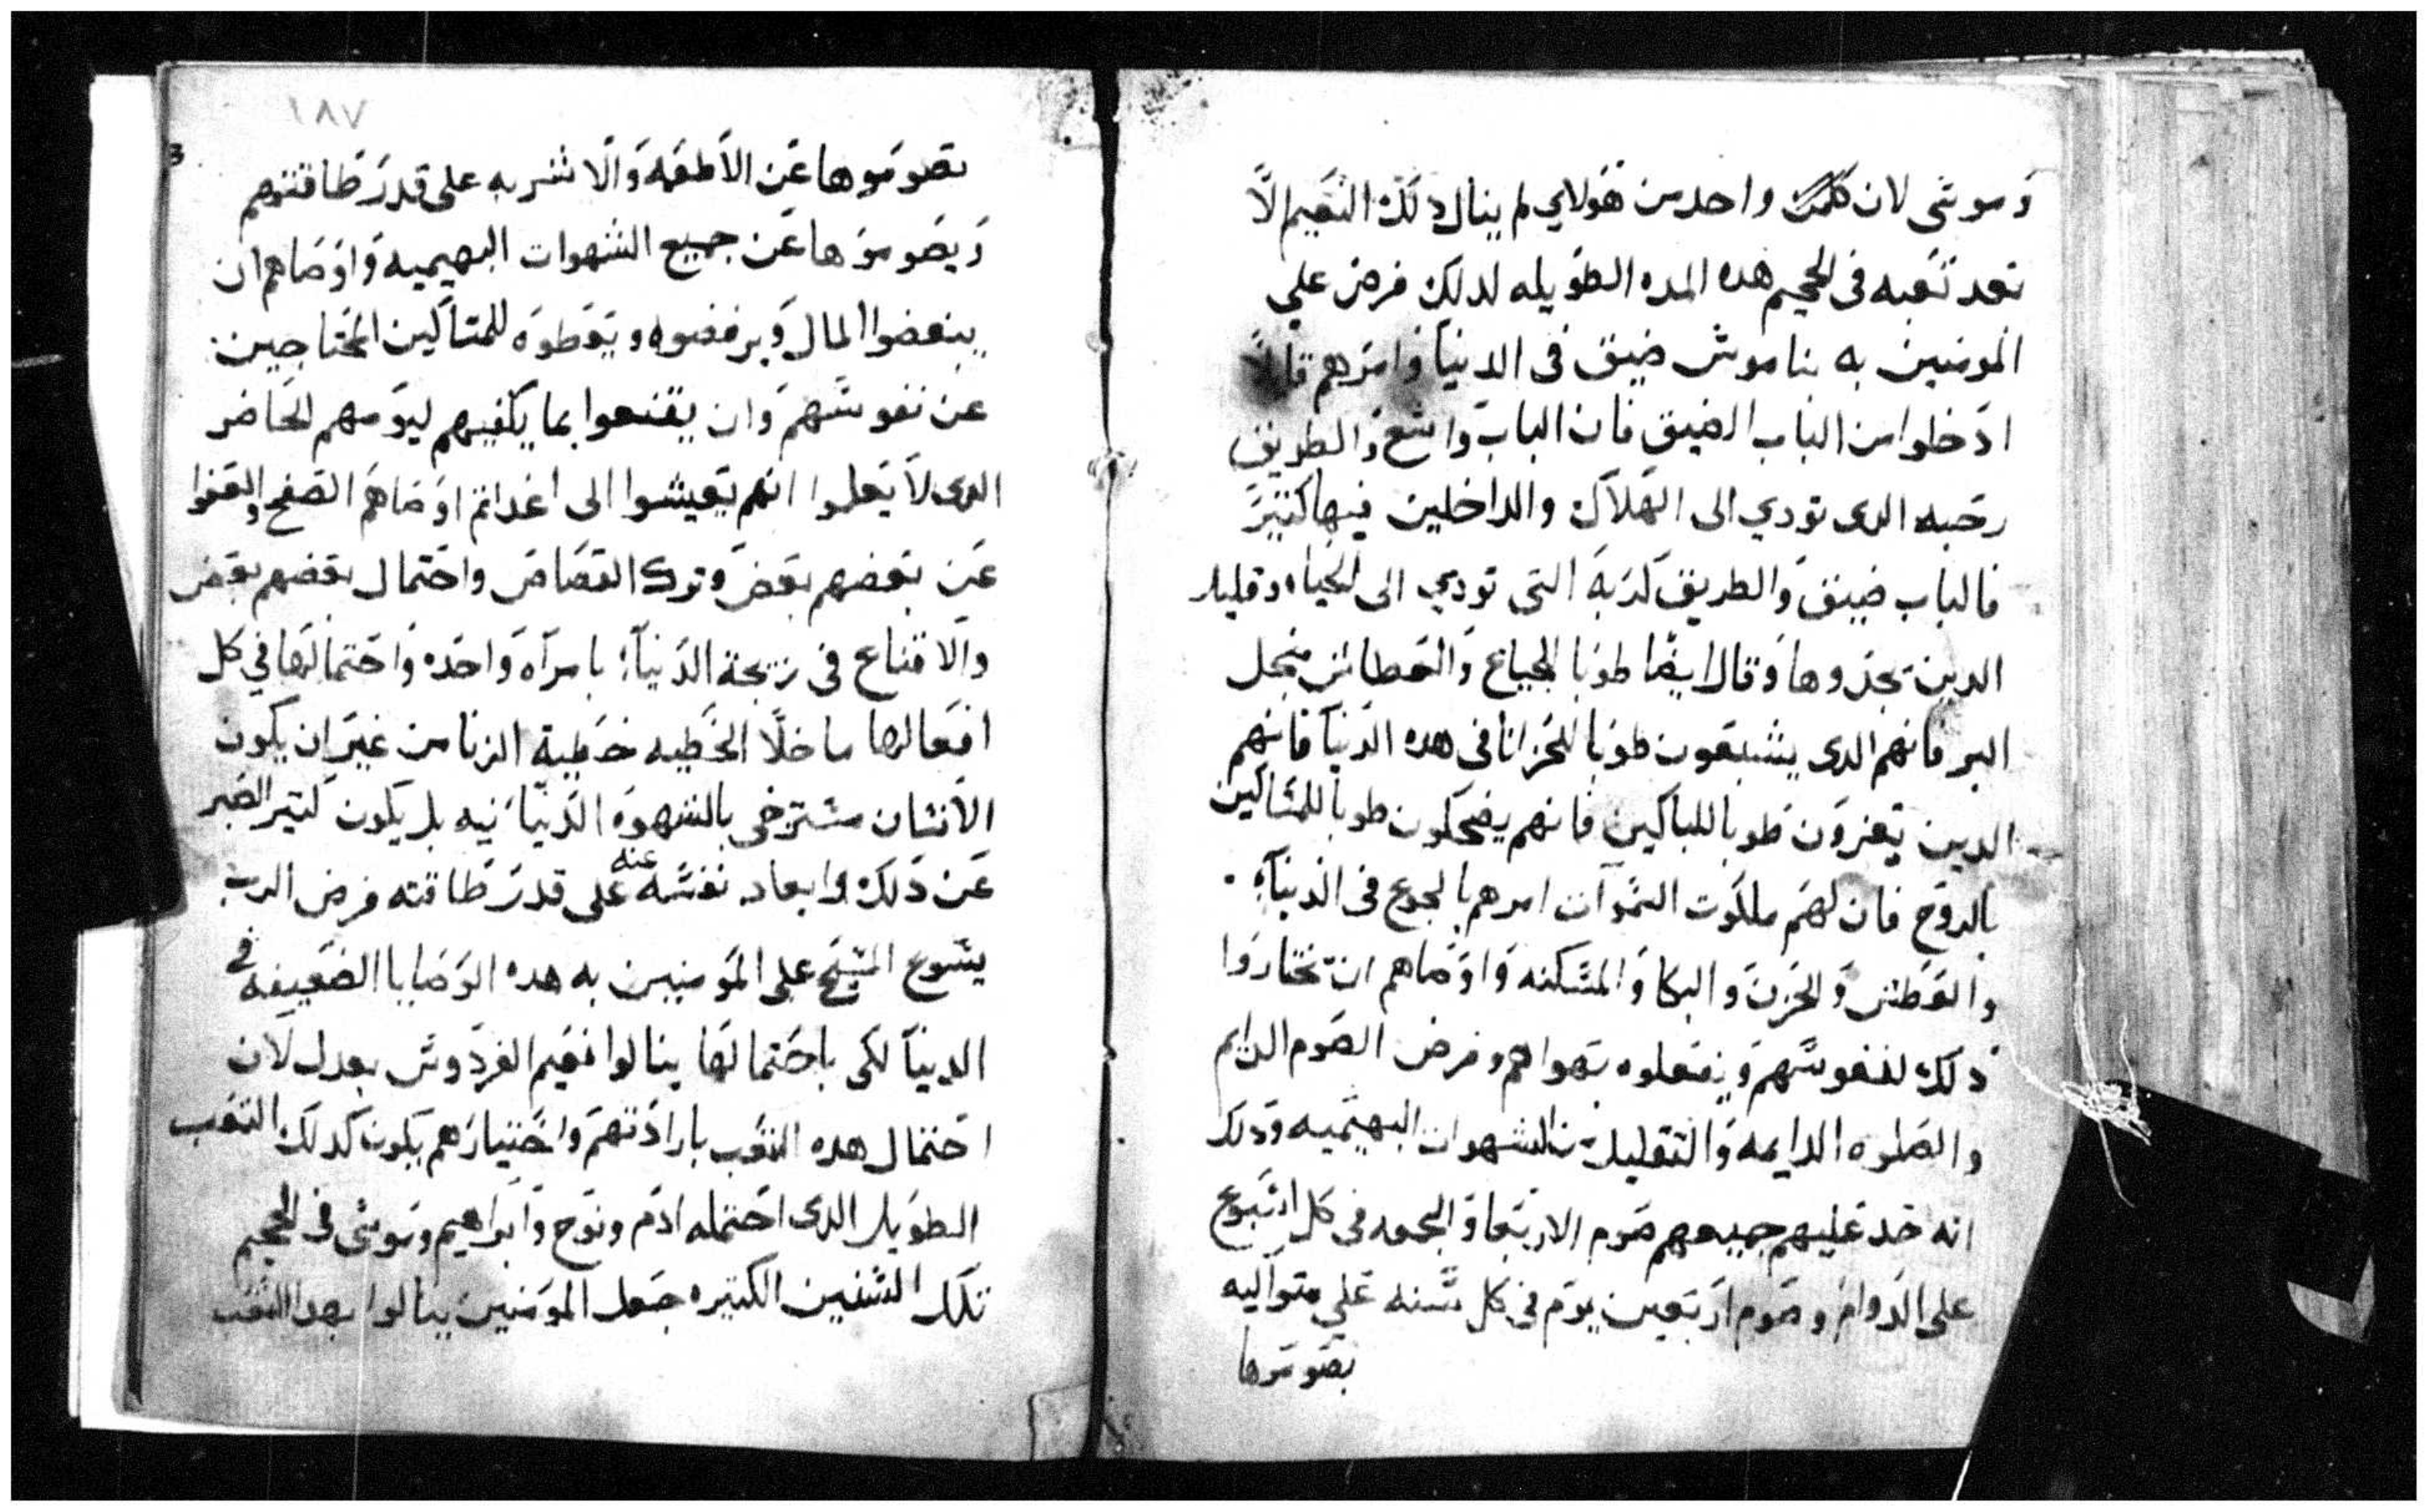 وموسى لان كلمن واحد من هولاي لم ينال دلك النعيم الا
بعد تعبه في الجحيم هده المده الطويله لدلك فرض علي
المومنين به بناموس ضيق في الدنيا وامرهم قايلا
ادخلوا من الباب الضيق فان الباب واسع والطريق
رحبه الدى تودي الى الهلاك والداخلين فيها كتير
فالباب ضيق والطريق كربه التي تودي الى الحياه وقليل
الدين يجدوها وقال ايضا طوبا للجياع والعطاش من اجل
البر فانهم الدى يشبعون طوبا للحزانا في هده الدنيا فانهم
الدين يعزون طوبا للباكين فانهم يضحكون طوبا للمساكين
بالروح فان لهم ملكوت السموات امرهم بالجوع في الدنيا
والعطش والحزن والبكا والمسكنه واوصاهم ان يختاروا
دلك لنفوسهم ويفعلوه بهواهم وفرض الصوم الدايم
والصلوه الدايمه والتقليل من الشهوات البهيميه ودلك
انه حد عليهم جميعهم صوم الاربعا والجمعه في كل اسبوع
على الدوام وصوم اربعين يوم في كل سنه علي متواليه
يصوموها
١٨٧
يصوموها عن الاطعمه والاشربه على قدر طاقتهم
ويصوموها عن جميع الشهوات البهيميه واوصاهم ان
يبغضوا المال ويرفضوه ويعطوه للمساكين المحتاجين
عن نفوسهم وان يقنعوا بما يكفيهم ليومهم الحاضر
الدى لا يعلموا انهم يعيشوا الى غد اتم اوصاهم الصفح والعفوا
عن بعضهم بعض وترك القصاص واحتمال بعضهم بعض
والاقناع في زيجة الدنيا بامراه واحده واحتمالها في كل
افعالها ما خلا الخطيه خطية الزنا من غير ان يكون
الانسان مسترخى بالشهوه الدنيانيه بل يكون كتير الصبر
عن دلك وابعاد نفسه عنه على قدر طاقته فرض الرب
يسوع المسيح على المومنين به هده الوصايا الضعيفه في
الدنيا لكى باحتمالها ينالوا نعيم الفردوس بعدل لان
احتمال هده التعب بارادتهم واختيارهم يكون كدلك التعب
الطويل الدى احتمله ادم ونوح وابراهيم وموسى في الجحيم
تلك السنين الكتيره جعل المومنين ينالوا بهدا التعب